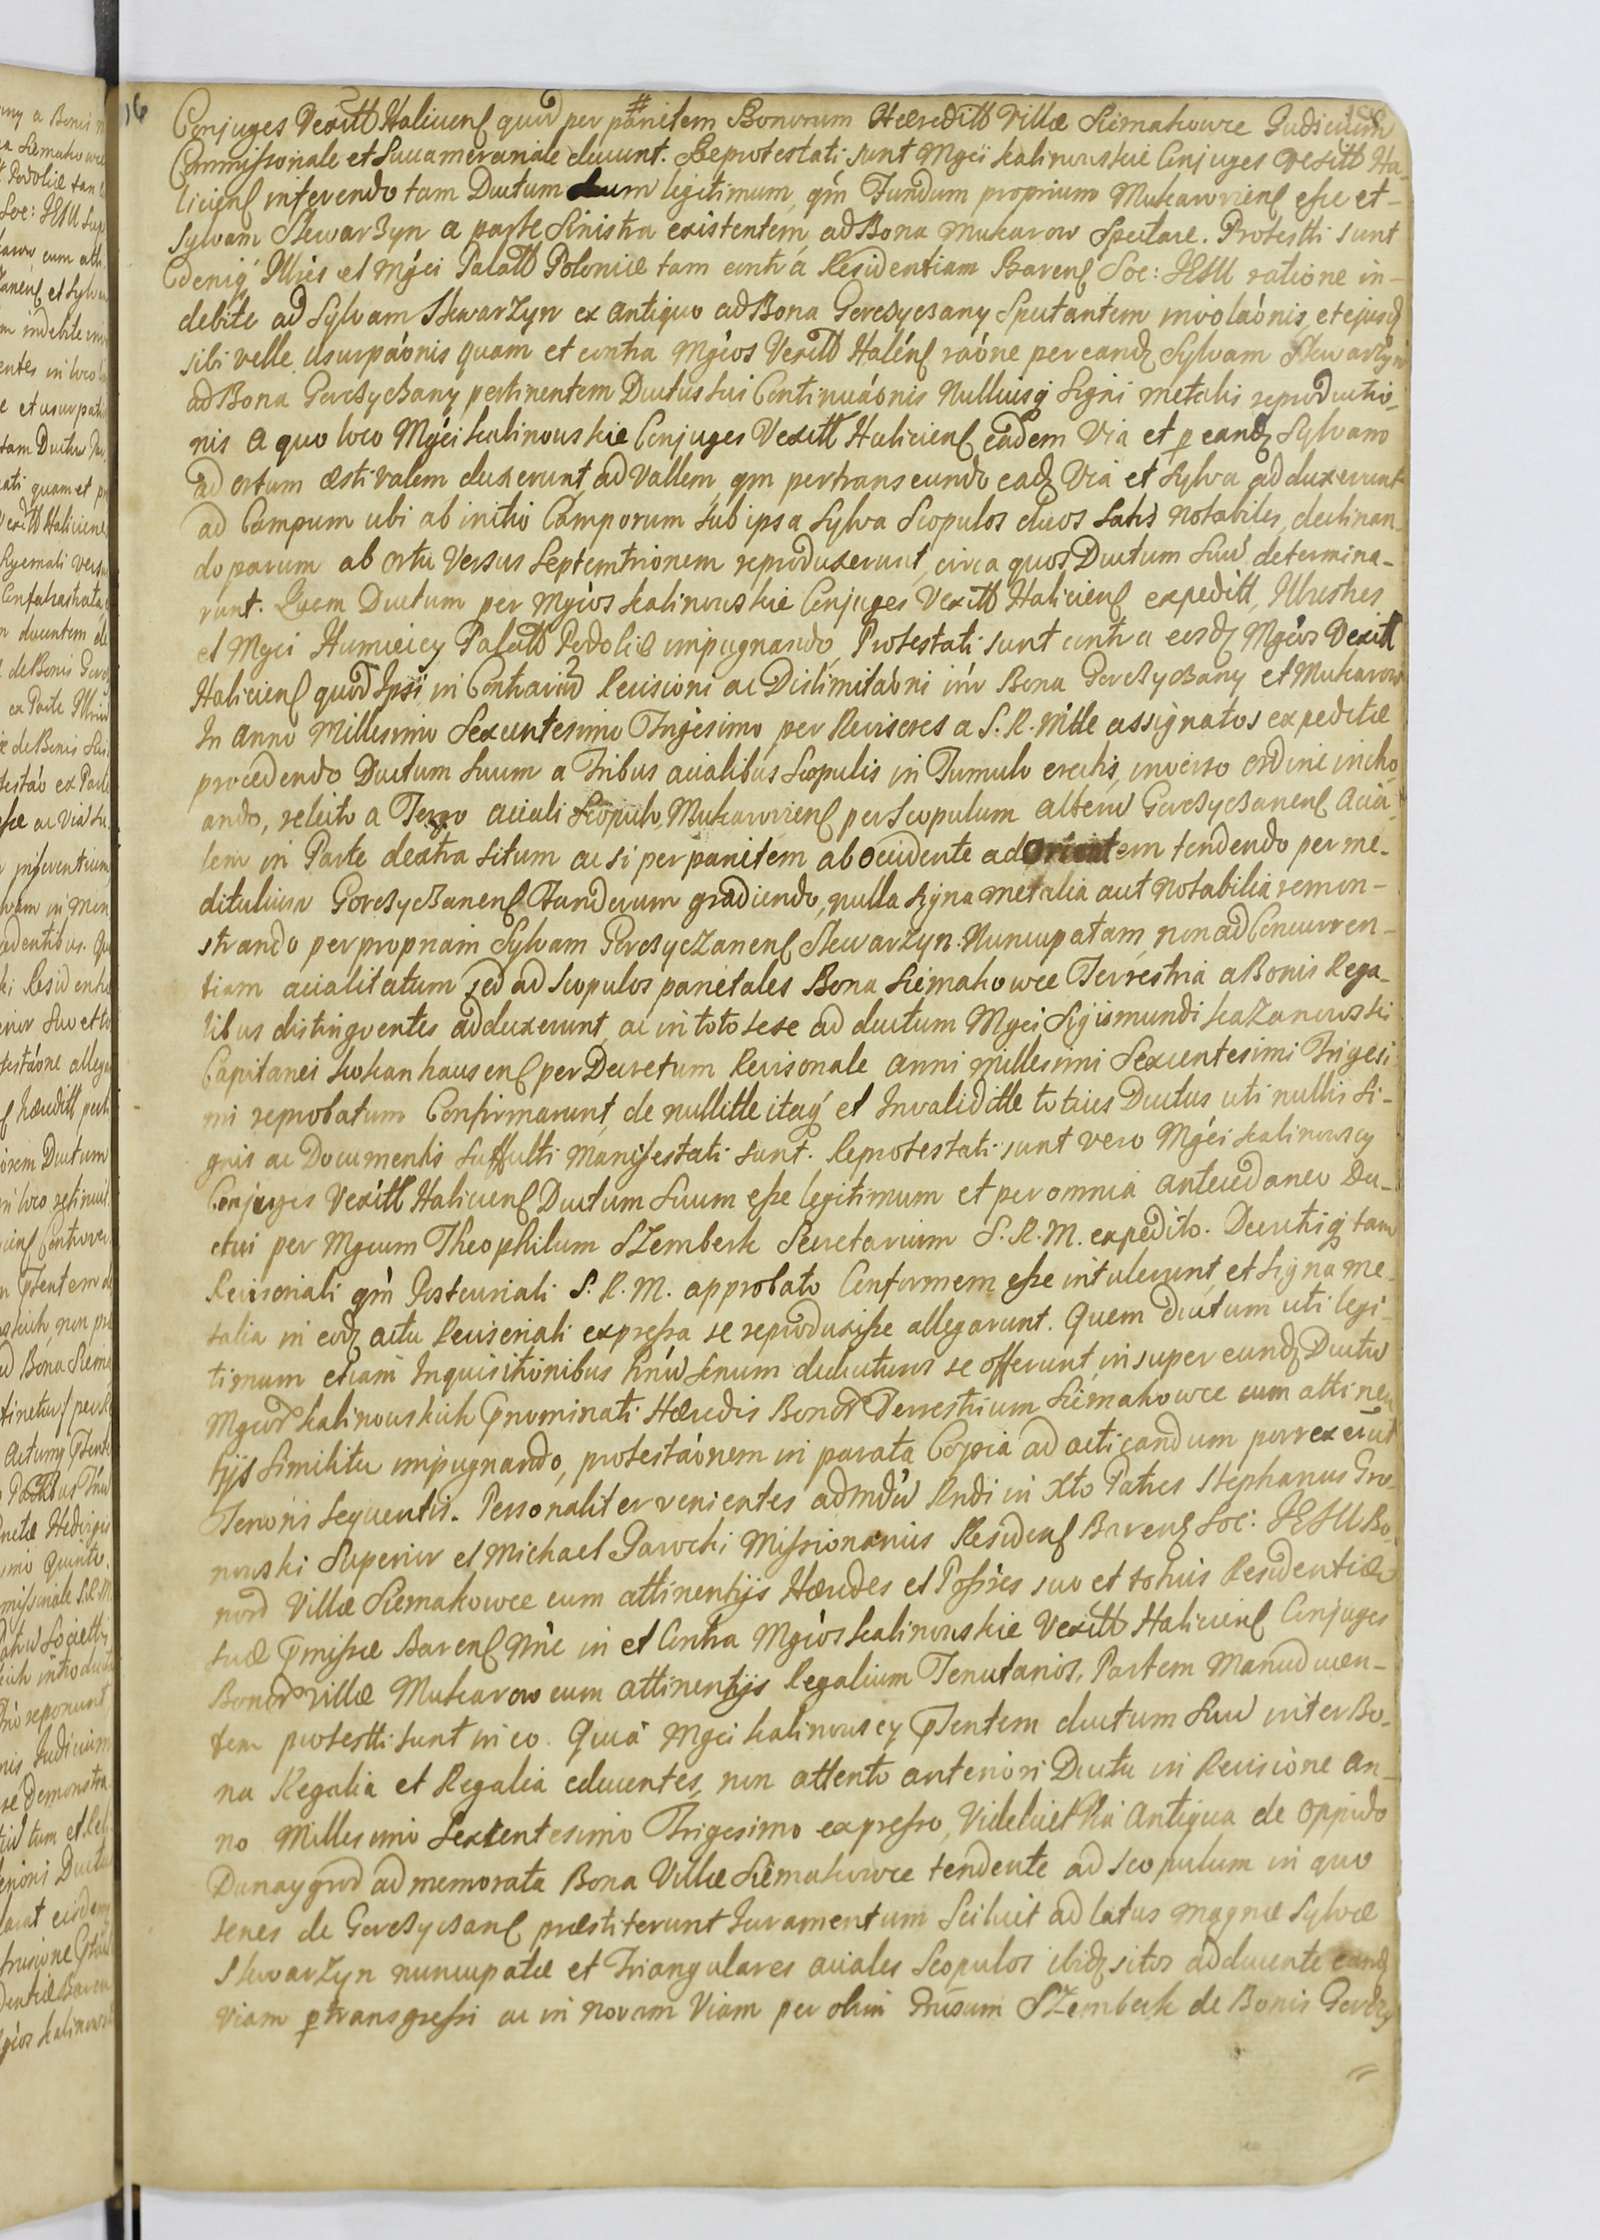 16
Conjuges Vexill Haliciens quod per parietem Bonorum Hæreditt Villæ Siemakowce Judicium
Commissionale et Succamerariale ducunt. Reprotestati sunt Mgci Kalinowskie Conjuges Vexill Ha-
liciens inferendo tam Ductum suum legitimum, qm Fundum proprium Mukarowiens esse et
Sylvam Skwarzyn a parte sinistra existentem, ad Bona Mukarow spectare. Protestti sunt
deniq Illres et Mgci Palatt Podoliæ tam contra Residentiam Barens Soc: JESU ratione in-
debite ad Sylvam Skwarzyn ex antiquo ad Bona Gereczyczany spectantem involaonis, et ejusd
sibi velle usurpaonis quam et contra Mgcos Vexill Halens raone per eand Sylvam Skwarzyn
ad Bona Gereczyczany pertinentem Ductus sui Continuaonis Nulliusq Signi metalis reproductio-
nis a quo loco Mgci Kalinowskie Conjuges Vexill Haliciens eadem Via et p eand Sylvam
ad ortum æstivalem duxerunt, ad Vallem, qm pertranseundo ead Via et Sylva adduxerunt
ad Campum ubi ab initio Camporum sub ipsa Sylva Scopulos duos satis notabiles, declinan-
do parum ab ortu versus Septemtrionem reproduxerunt, circa quos Ductum suu determina-
runt. Quem Ductum per Mgcos Kalinowskie Conjuges Vexill Haliciens expeditt, Illustres
et Mgci Humieicy Palatt Podoliæ impugnando, Protestati sunt contra eosd Mgcos Vexill
Haliciens quod Ipsi in Contrariu Revisioni ac Dislimitaoni inr Bona Gereczyczany et Mukarow
In anno Millesimo Sexcentesimo Trigesimo per Revisores a S. R. Mtte assignatos expeditæ
procedendo Ductum suum a Tribus acialibus Scopulis in Tumulo erectis, inverso ordine incho-
ando, relicto a Tergo aciali Scopulo Mukarowiens per Scopulum alteru Gereczyczanens Acia-
lem in Parte dextra situm ac si per parietem ab occidente ad Orientem tendendo per me-
ditulium Gereczyczanens Fundorum gradiendo, nulla signa metalia aut notabilia remon-
strando per propriam Sylvam Gereczyczanens Skwarzyn Nuncupatam, non ad Concurren-
tiam acialitatum sed ad Scopulos parietales Bona Siemakowce Terrestria a Bonis Rega-
libus distinguentes adduxerunt, ac in toto sese ad ductum Mgci Sigismundi Kazanowski
Capitanei Kokanhausens per Decretum Revisionale anni millesimi Sexcentesimi Trigesi-
mi reprobatum Confirmarunt, de nullitte itaq et Invaliditte totius Ductus uti nullis si-
gnis ac Documentis suffulti Manifestati sunt. Reprotestati sunt vero Mgci Kalinowscy
Conjuges Vexill Haliciens Ductum suum esse legitimum et per omnia antecedaneo Du-
ctui per Mgcum Theophilum Szembek Secretarium S. R. M. expedito. Decretisq tam
Revisoriali qm Postcuriali S. R. M. approbato Conformem esse intulerunt, et signa me-
talia in eod actu Revisoriali expressa se reproduxisse allegarunt. Quem ductum uti legi-
timum etiam Inquisitionibus hinc senum deducturos se offerunt, insuper eund Ductu
Mgcor Kalinowskich pnominati Hæredis Bonor Terrestrium Siemakowce cum attinen-
tijs similiter impugnando, protestaonem in parata Copia ad acticandum porrexerut
Tenoris sequentis. Personaliter venientes admdu Rndi in Xto Patres Stephanus Gro-
nowski Superior et Michael Jarocki Missionarius Residens Barens Soc: JESU Bo-
nor Villæ Siemakowce cum attinentijs Hæredes et Possres suo et totius Residentiæ
suæ pmissæ Barens Nnie in et Contra Mgcos Kalinowskie Vexill Haliciens Conjuges
Bonor Villæ Mukarow cum attinentijs Regalium Tenutarios, Partem Manuducen-
tem protestti sunt in eo. Quia Mgci Kalinowscy psentem ductum suu inter Bo-
na Regalia et Regalia educentes, non attento anteriori Ductu in Revisione an-
no Millesimo Sexcentesimo Trigesimo expresso, Videlicet Via Antiqua de Oppido
Dunaygrod ad memorata Bona Villæ Siemakowce tendente ad scopulum in quo
senes de Gereczyczans præstiterunt Juramentum Scilicet ad latus magnæ Sylvæ
Skwarzyn nuncupatæ et Triangulares aciales Scopulos ibid sitos adducente eand
Viam ptransgressi ac in novam Viam per olim Gnsum Szembek de Bonis Gereczy